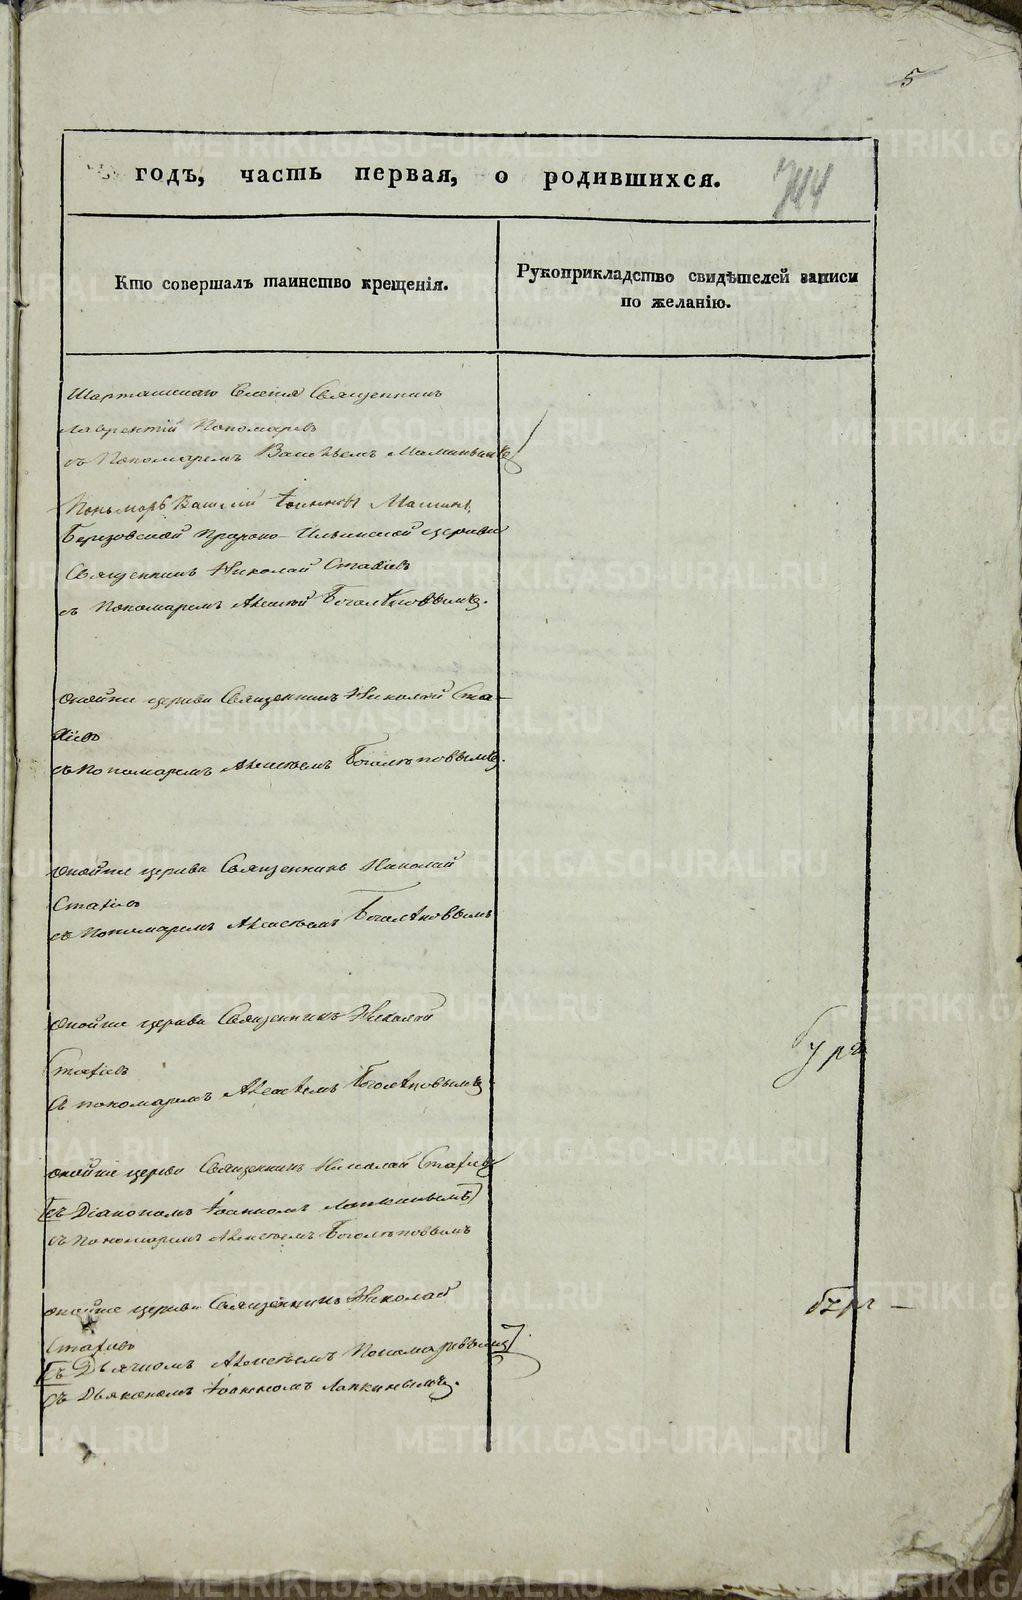 5
годъ, часть первая, о родившихся.
744
Кто совершалъ таинство крещенія.
Рукоприкладство свидѣтелей записи
по желанію.
Шарташскаго Селенія Священникъ
Лаврентій Пономаревъ
съ Пономаремъ Васильемъ
Пономарь Василій Іоанновъ
Березовской Пророко-Ильинской церкви
Священникъ Николай Стахіевъ
съ Пономаремъ Алексѣй Боголѣповымъ.
оной же церкви Священникъ Николай Ста-
хіевъ
съ Пономаремъ Алексѣемъ Боголѣповымъ.
оной же церкви Священникъ Николай
Стахіевъ
съ Пономаремъ Алексѣемъ Боголѣповымъ
оной же церкви Священникъ Николай
Стахіевъ
съ пономаремъ Алексѣемъ Боголѣповымъ
оной же церкви Священникъ Николай Стахіевъ
съ Діакономъ Іоанномъ Лапкинымъ
съ Пономаремъ Алексѣемъ Боголѣповымъ
оной же церкви Священникъ Николай
Стахіевъ
съ Дьячкомъ Алексѣемъ Пономаревымъ
съ Дьякономъ Іоанномъ Лапкинымъ.
METRIKI.GASO-URAL.RU